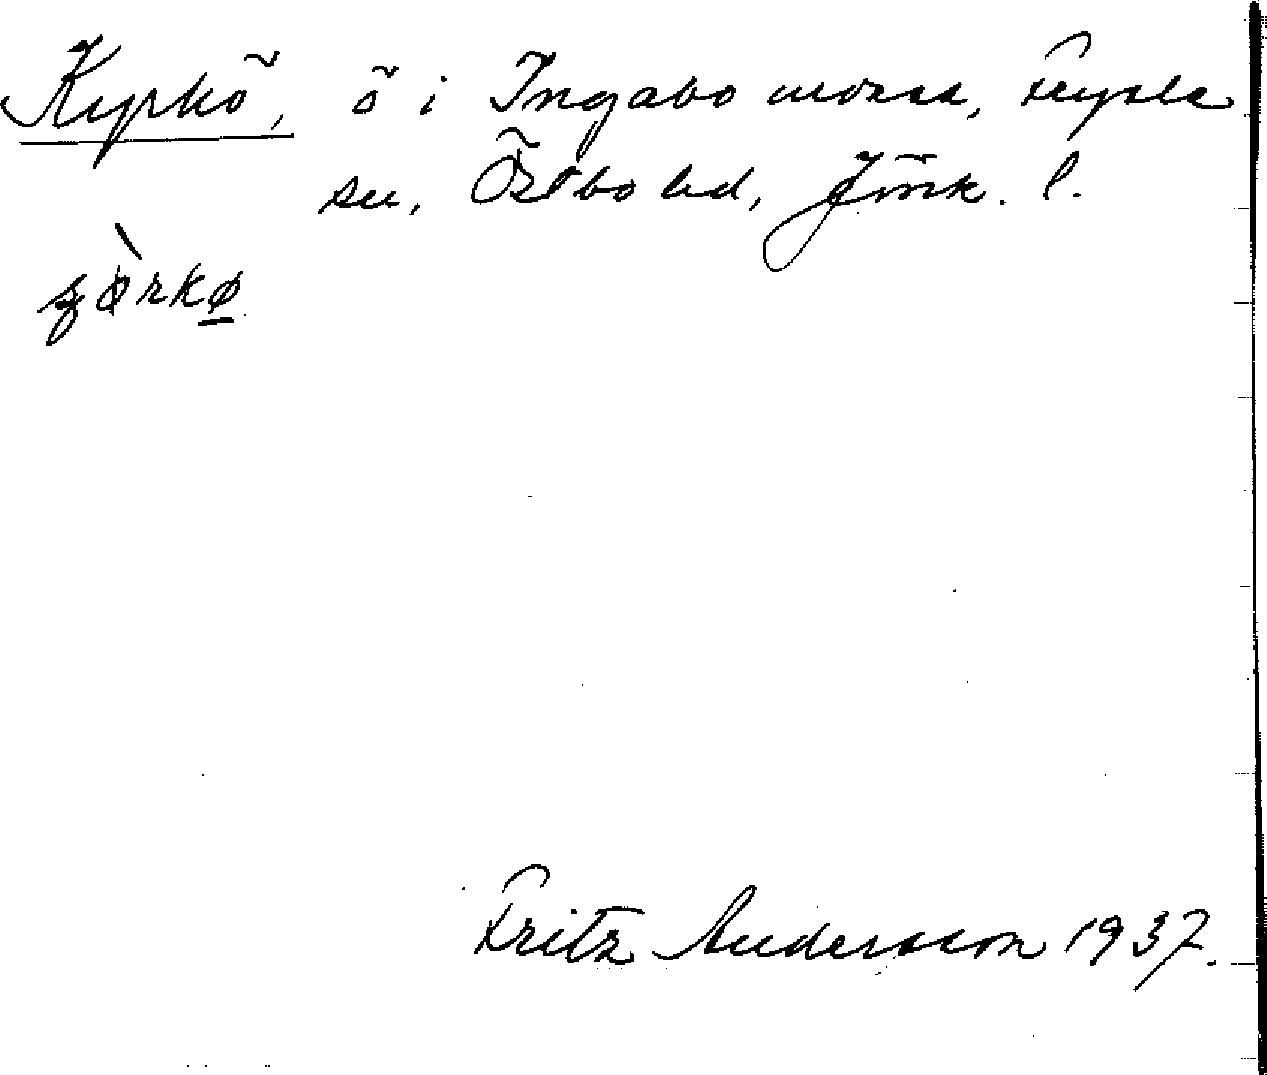 Kyrkö, ö i Ingabo mosse, Fryele
sn, Östbo hd, Jönk. l.
çø̀rkø
Fritz Andersson 1937.